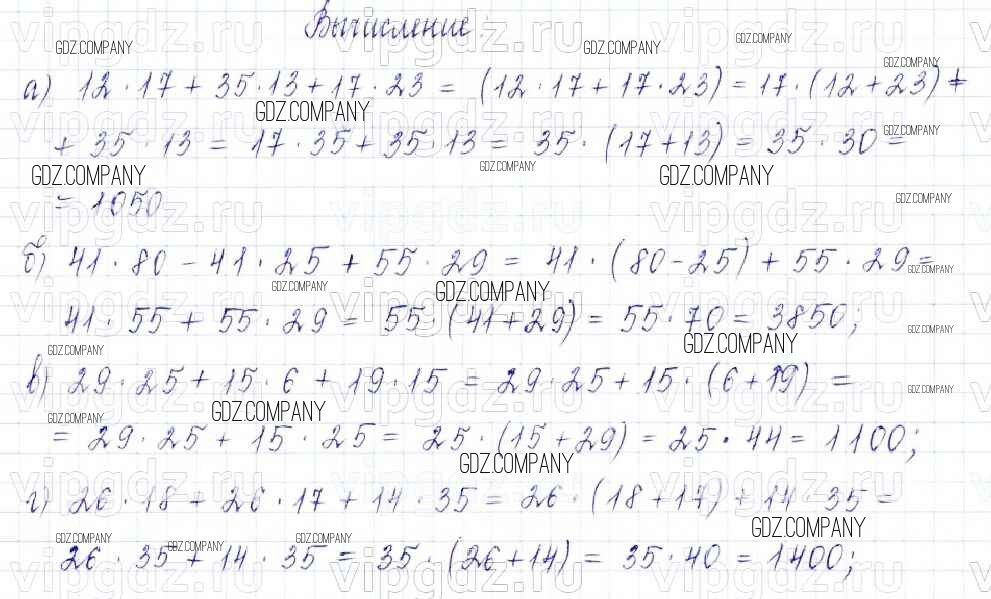 Вычисление:
а) 12 · 17 + 35 · 13 + 17 · 23 = (12 · 17 + 17 · 23) = 17 · (12 + 23) +
+ 35 · 13 = 17 · 35 + 35 · 13 = 35 · (17 + 13) = 35 · 30 =
= 1050
б) 41 · 80 - 41 · 25 + 55 · 29 = 41 · (80 - 25) + 55 · 29 =
41 · 55 + 55 · 29 = 55 · (41 + 29) = 55 · 70 = 3850;
в) 29 · 25 + 15 · 6 + 19 · 15 = 29 · 25 + 15 · (6 + 19) =
= 29 · 25 + 15 · 25 = 25 · (15 + 29) = 25 · 44 = 1100;
г) 26 · 18 + 26 · 17 + 14 · 35 = 26 · (18 + 17) + 14 · 35 =
26 · 35 + 14 · 35 = 35 · (26 + 14) = 35 · 40 = 1400;
GDZ.COMPANY
vipgdz.ru